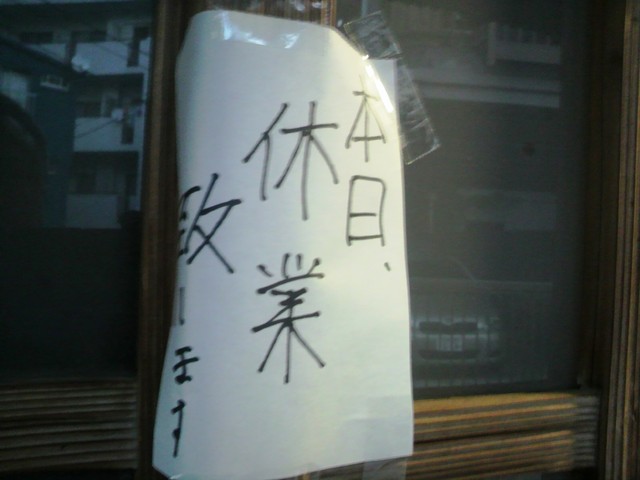 本日、
休業
致します